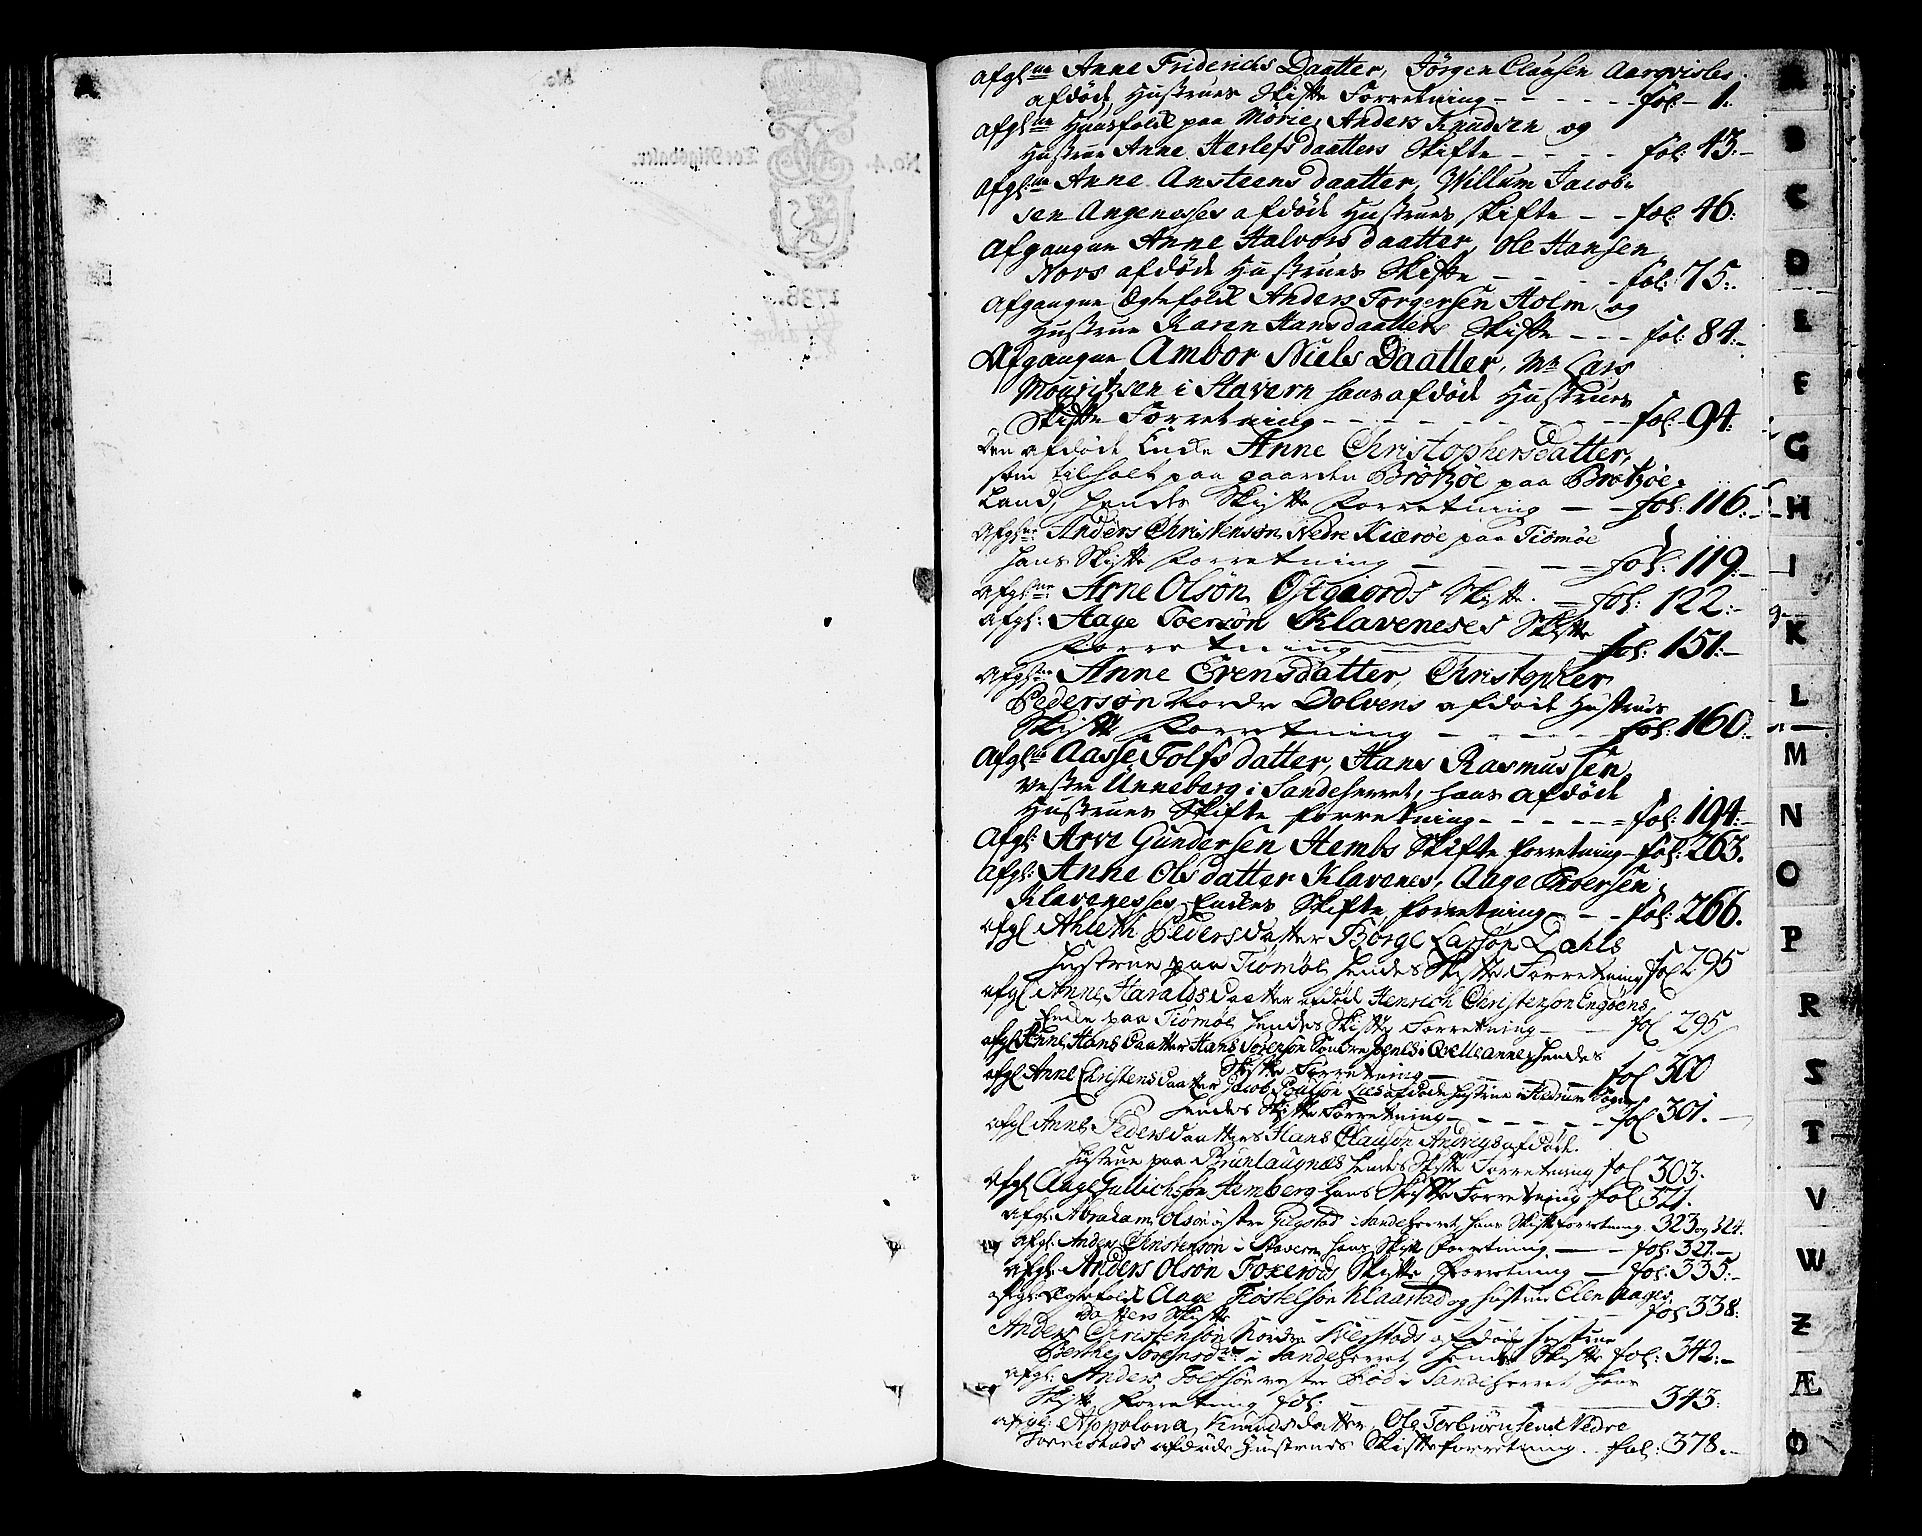 afgl:ne Anne Friderichs Daatter, Jörgen Clausen Aarqvisles
afdöde Hustrues Skifte Forretning - - - - - - fol - 1:
afgl:ne Huusfolk paa Mörie, Anders Knudsen og
Hustrue Anne Herlefsdaatters Skifte - - - - fol: 43:-
afgl:ne Anne Ansteens daatter, Willum Jacob-
sen Angenesses afdöde Hustrues Skifte - - fol: 46:
Afgangne Anne Halvors daatter, Ole Hansen
Nors afdöde Hustrues Skifte - - - fol: 75:
Afgangne Egtefolk Anders Torgersen Holm og
Hustrue Karen Hansdaatters Skifte - - - fol: 84:-
Afgangne Ambor Niels Daatter, Mr Lars
Mouritzsen i Stavern hans afdöde Hustrues
Skifte Forretning - - - - - - - - fol: 94:
Den afdöde Enke Anne Christophersdatter,
som tilholt paa gaarden Brötzöe paa Brötzöe-
Land, hendes Skifte Forretning - - fol: 116:-
Afgl:ne Anders Christensön Nedre Kiæröe paa Tiömöe
hans Skifte Forretning - - - - fol: 119:-
afgl:ne Arne Olsön Östgiords Skifte - fol: 122:-
afgl: Aage Iversön Klaveneses Skifte
Forretning - fol: 151:-
afgl:ne Anne Evensdatter, Christopher
Pedersön Nordre Dolvens afdöde Hustrues
Skifte Forretning - - - - - fol: 160:-
afgl:ne Aasse Tolfsdatter, Hans Rasmussen
Vestre Unneberg i Sandeherret, hans afdöde
Hustrues Skifte forretning - - - - - fol: 194:-
Afgl: Arve Gundersen Hembs Skifte forretning - fol: 263.
Afgl: Anne Olsdatter Klavenes, Aage Iversen
Klavenesses Enkes Skifte forretning - - fol: 266.
afgl Ahleth Pedersdatter Börge Larsön Dahls
Hustrue paa Tiömöe hendes Skifte Forretning fol 295
afgl Anne Haraldsdaatter afdöde Henrich Christensön Engöens
Enke paa Tiömöe hendes Skifte Forretning - fol 295
afgl Anne Hansdaatter Hans Sörensön Söndre i hendes
Skifte Forretning - - - fol 300
afgl Anne Christensdaatter Jacob Poulsön afdöde Hustrue i Hedrum Sogn
hendes Skifte Forretning - - - - - fol 301.
afgl Anne Pedersdaatters Hans Clausön afdöde
Hustrue paa Brunlaugnæs hendes Skifte Forretning fol 303.
afgl Aage Gullichsön Hemberg hans Skifte Forretning fol 321.
afgl: Abraham Olsön östre Fugstad i Sandeherret, hans Skifte forretning. 323 og 324.
afgl: Anders Christensön i Stavern hans Skifte forretning - - fol: 327.-
afgl: Anders Olson Foxeröds Skifte Forretning - fol: 335:-
afgl: Egtefolk Aage Klaastad og Hustrue Elen Aages
Datters Skifte - - - - - - fol 338:
Anders Christensön Nordre afdöde Hustrue
Berthe Sörensdr i Sandeherret, hendes Skifte fol: 342:-
afgl: Anders Tolfsön vestre Röd i Sandeherret hans
Skifte Forretning fol: - - - 343.
afgl: Appolona Knudsdatter, Ole Torbiörnsens Nedre
afdöde Hustrues Skifteforretning. fol: 378.-
A
B
C
D
E
F
G
H
I
K
L
M
N
O
P
R
S
T
V
W
Z
Æ
Ø